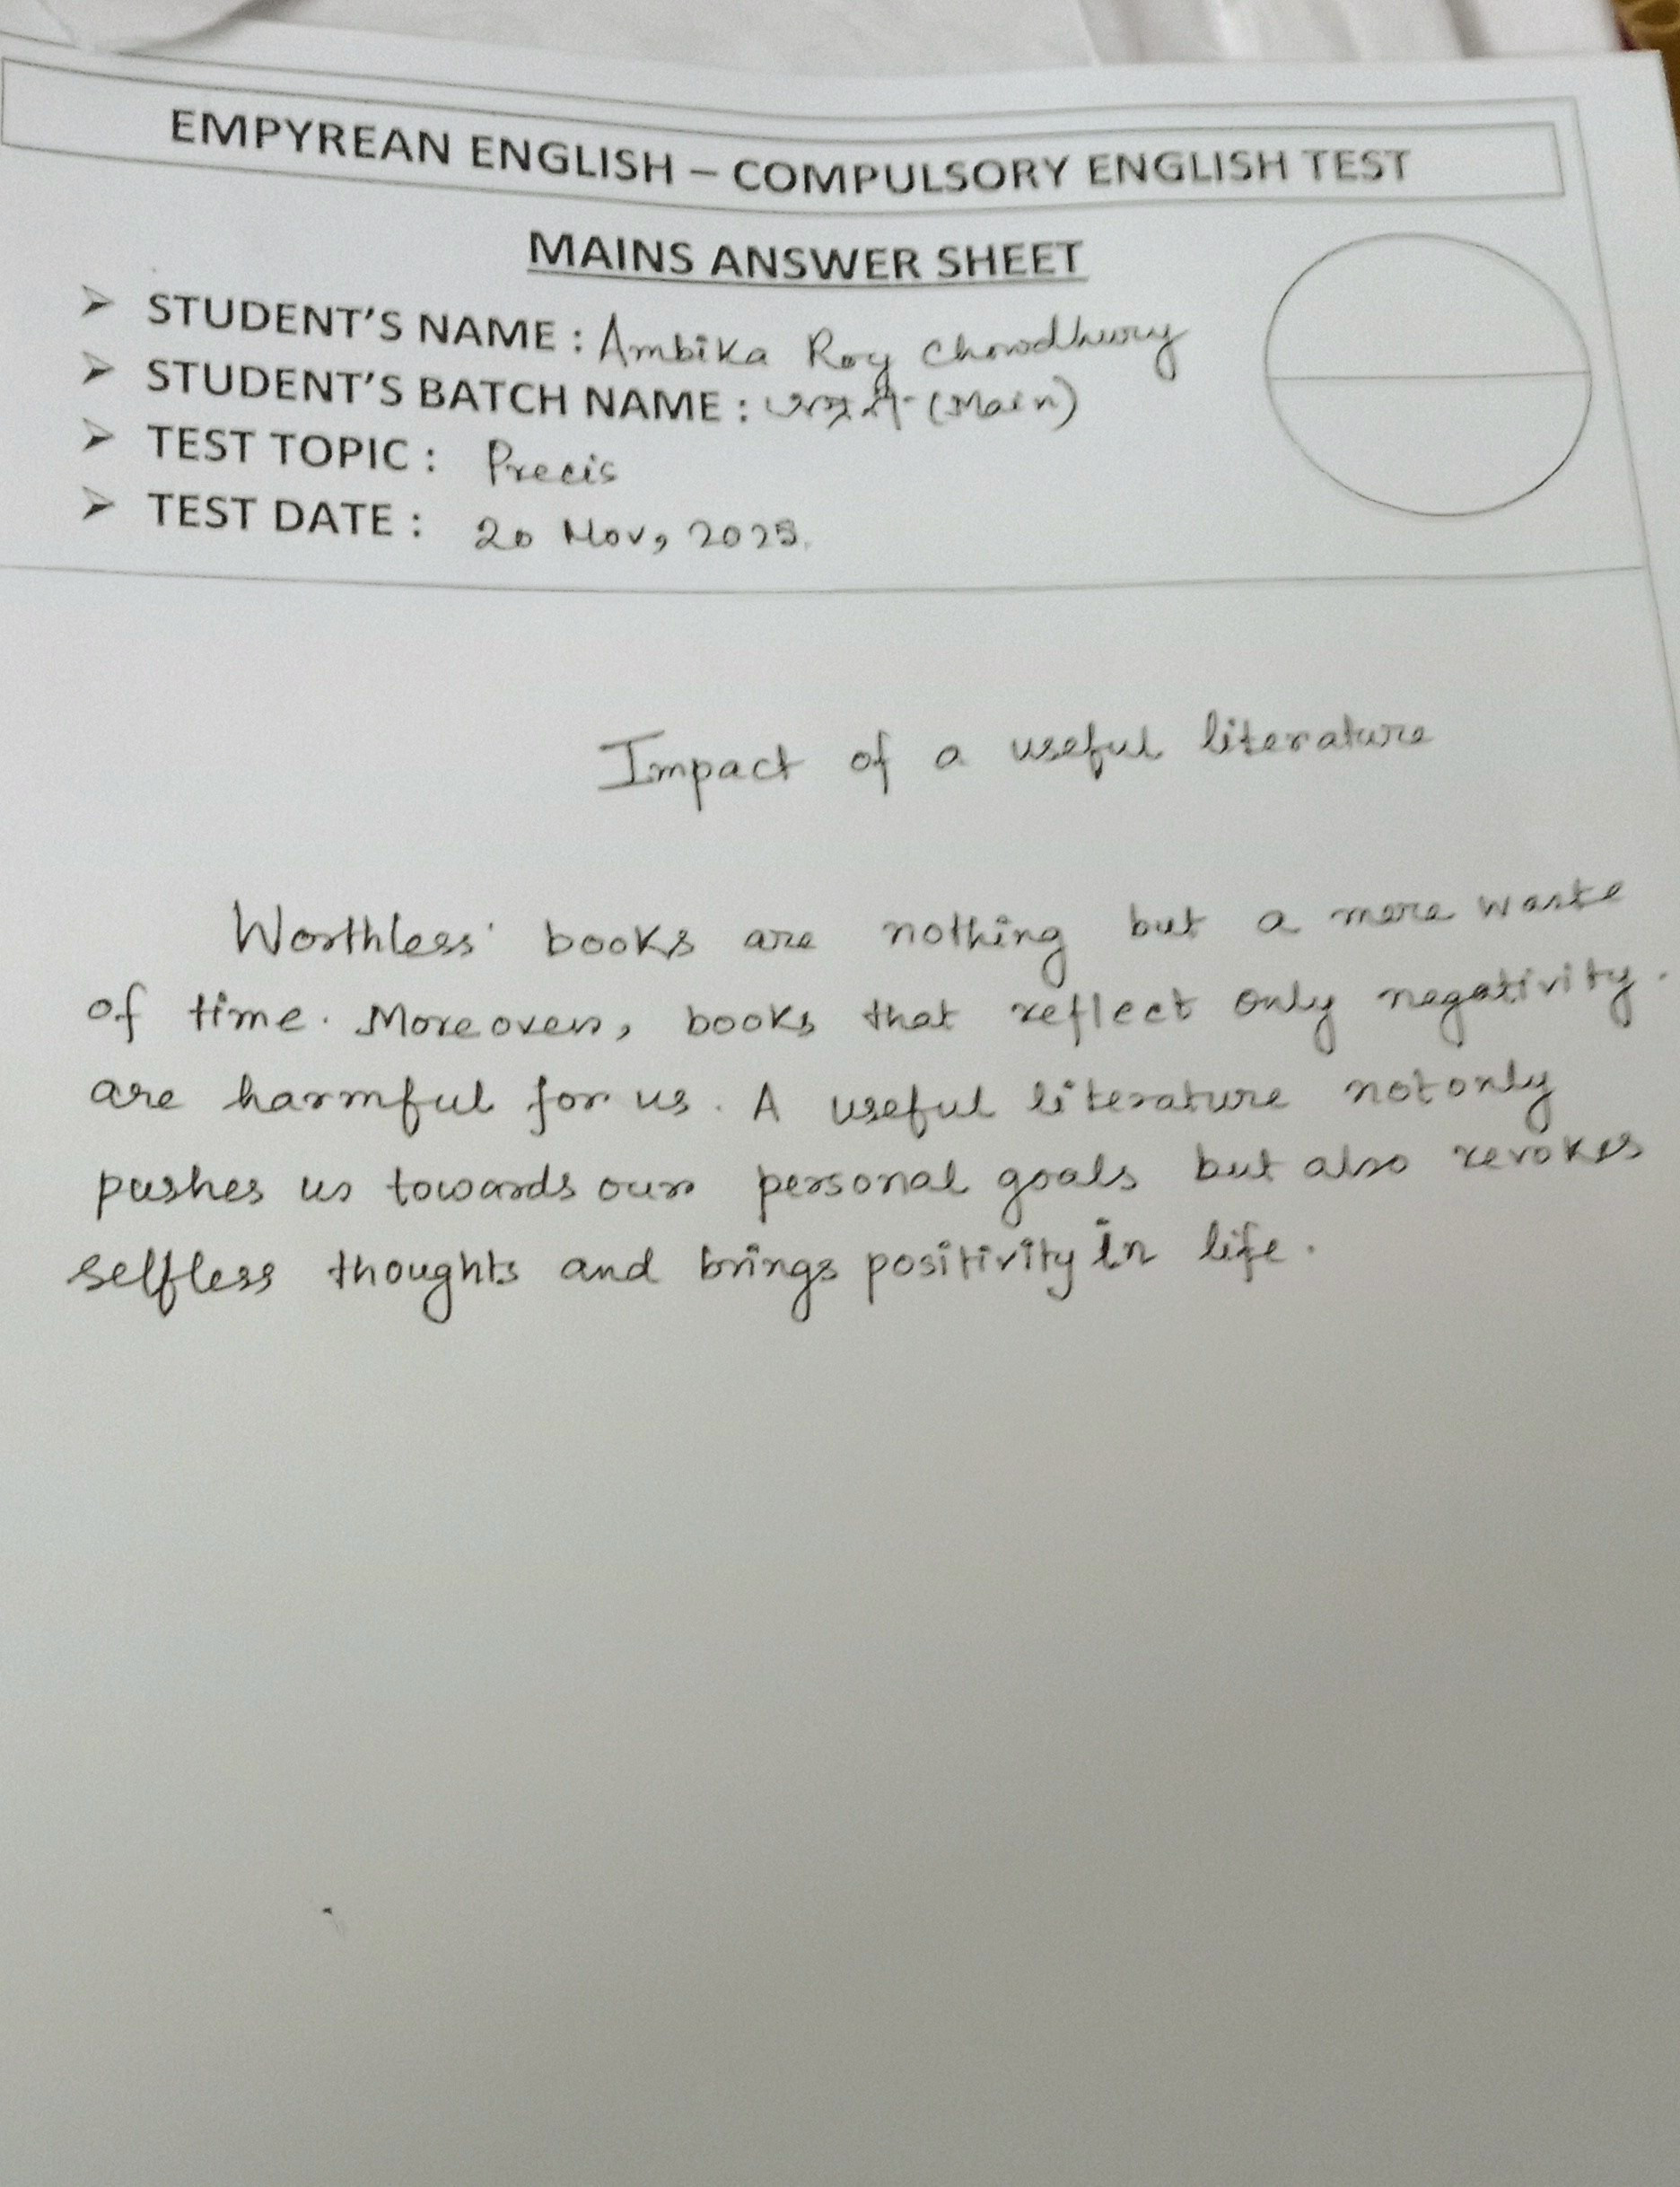 EMPYREAN ENGLISH – COMPULSORY ENGLISH TEST
MAINS ANSWER SHEET
➢ STUDENT'S NAME : Ambika Roy Chowdhury
➢ STUDENT'S BATCH NAME : (Main)
➢ TEST TOPIC : Precis
➢ TEST DATE : 20 Nov, 2025.
Impact of a useful literature
Worthless books are nothing but a mere waste
of time. Moreover, books that reflect only negativity.
are harmful for us. A useful literature not only
pushes us towards our personal goals but also revokes
selfless thoughts and brings positivity in life.